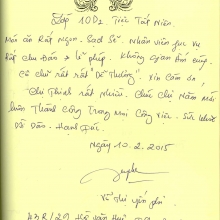 Lớp 10D2, Tiếc Tất Niên.
Món ăn Rất Ngon. Sạch Sẽ. Nhân viên phục vụ
Rất Chu Đáo lễ phép. Không gian ấm cúng.
Cô chủ rất rất "Dễ Thương". Xin cảm ơn,
Chị Thích rất Nhiều. Chúc Chị Năm Mới
luôn Thành Công Trong Mọi Công việc. Sức khỏe
Dồi Dào. Hạnh Phúc.
Ngày 10.2.2015
Vũ Thị yến phi
43R/20 Hồ văn Huê